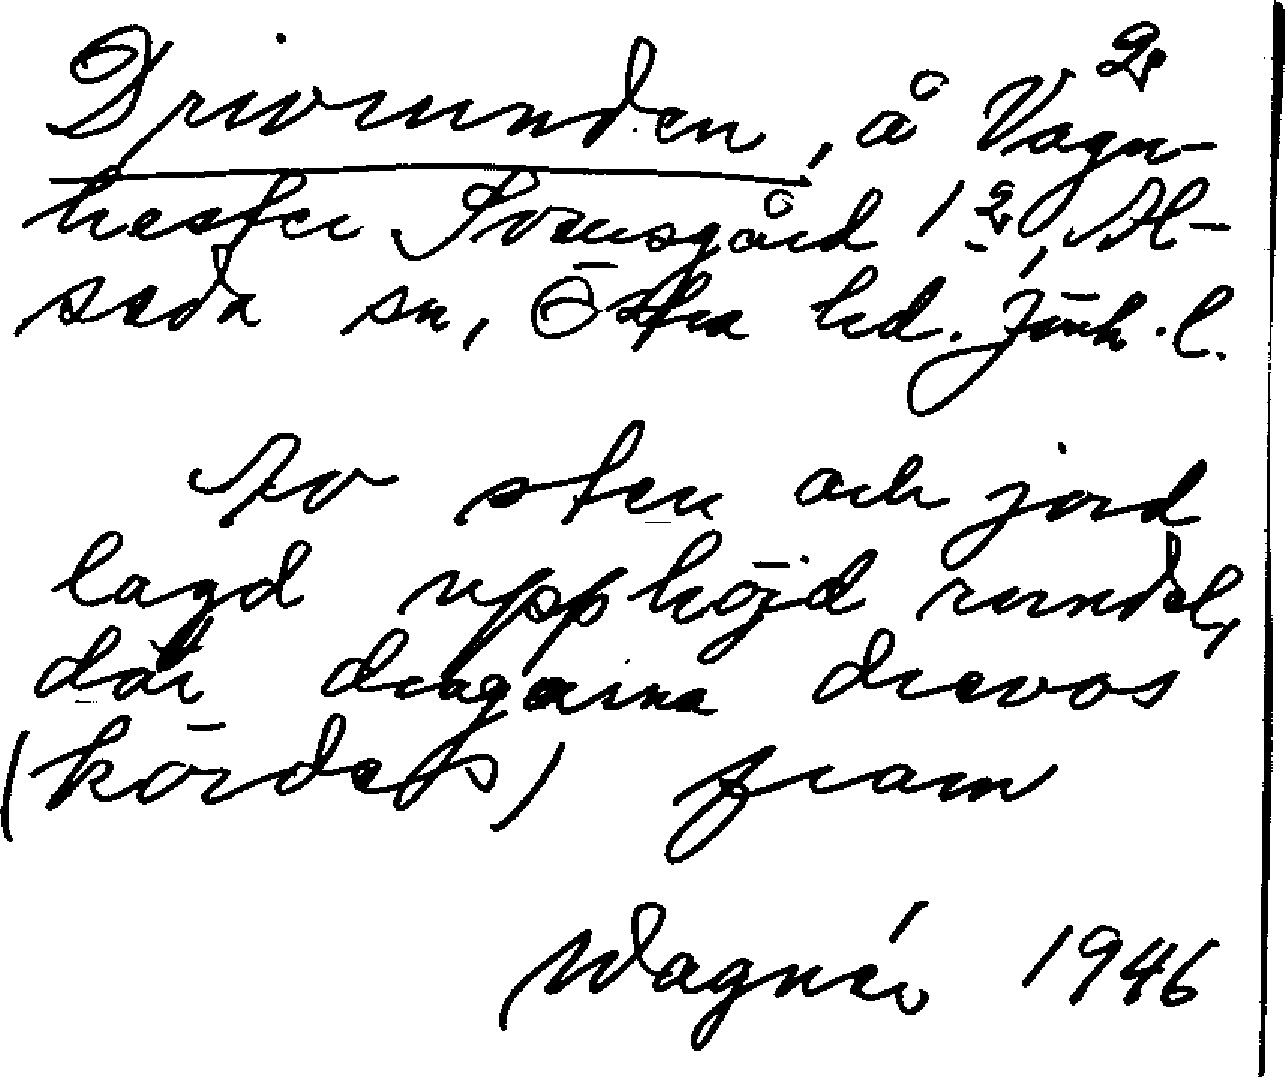 2
Drivrunden, å Vagn-
hester Svensgård 1 2, Al-
seda sn, Östra hd. Jönk. l.
Av sten och jord
lagd upphöjd rundel,
där dragarna drevos
(kördes) fram
Wagnér 1946